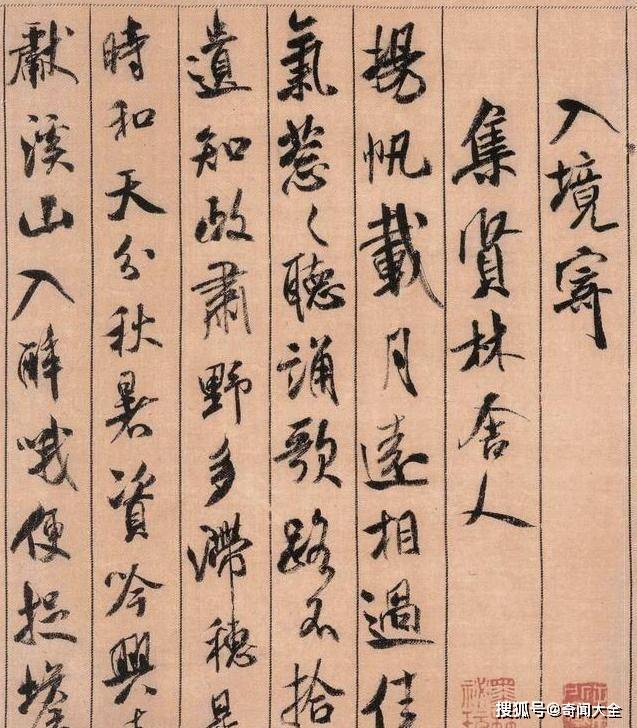 入境寄
集賢林舍人
揚帆載月遠相過佳
氣葱々聽誦歌路不拾
遺知政肅野多滯穗是
時和天分秋暑資吟興
獻溪山入醉哦便捉蟾
搜狐号@奇闻大全